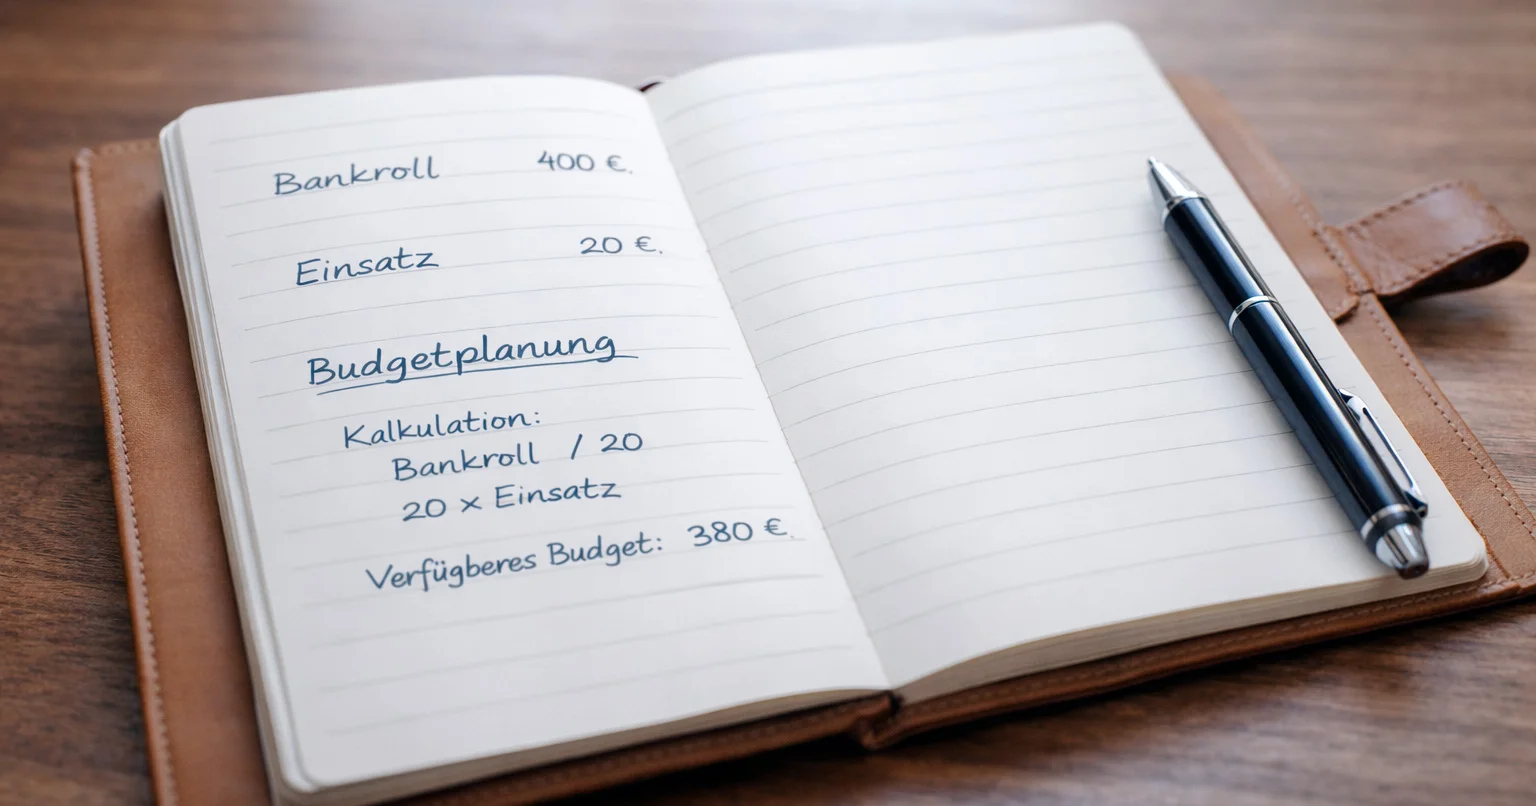 Bankroll 400 €.
Einsatz 20 €.
Budgetplanung
Kalkulation:
Bankroll / 20
20 × Einsatz
Verfügberes Budget: 380 €.